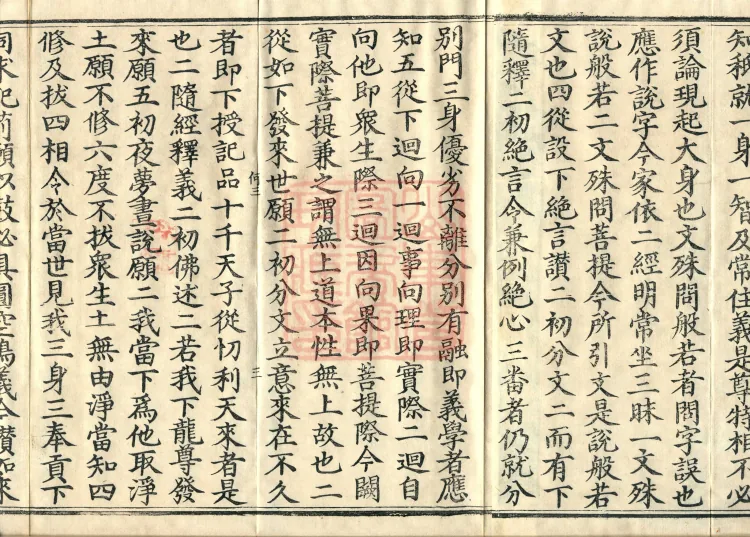 知稱就一身一智及常住義是尊特相不必
須論現起大身也文殊問般若者問字誤也
應作說字今家依二經明常坐三昧一文殊
說般若二文殊問菩提今所引文是說般若
文也四從設下絶言讃二初分文二而有下
隨釋二初絶言令兼例絶心三番者仍就分
別門三身優劣不離分別有融即義學者應
知五從下迴向一迴事向理即實際二迴自
向他即衆生際三迴因向果即菩提際今闕
實際菩提兼之謂無上道本性無上故也二
從如下發來世願二初分文立意來在不久
何三
三
者即下授記品十千天子從忉利天來者是
也二隨經釋義二初佛述二若我下龍尊發
來願五初夜夢晝説願二我當下爲他取淨
土願不修六度不拔衆生土無由淨當知四
修及拔四相令於當世見我三身三奉貢下